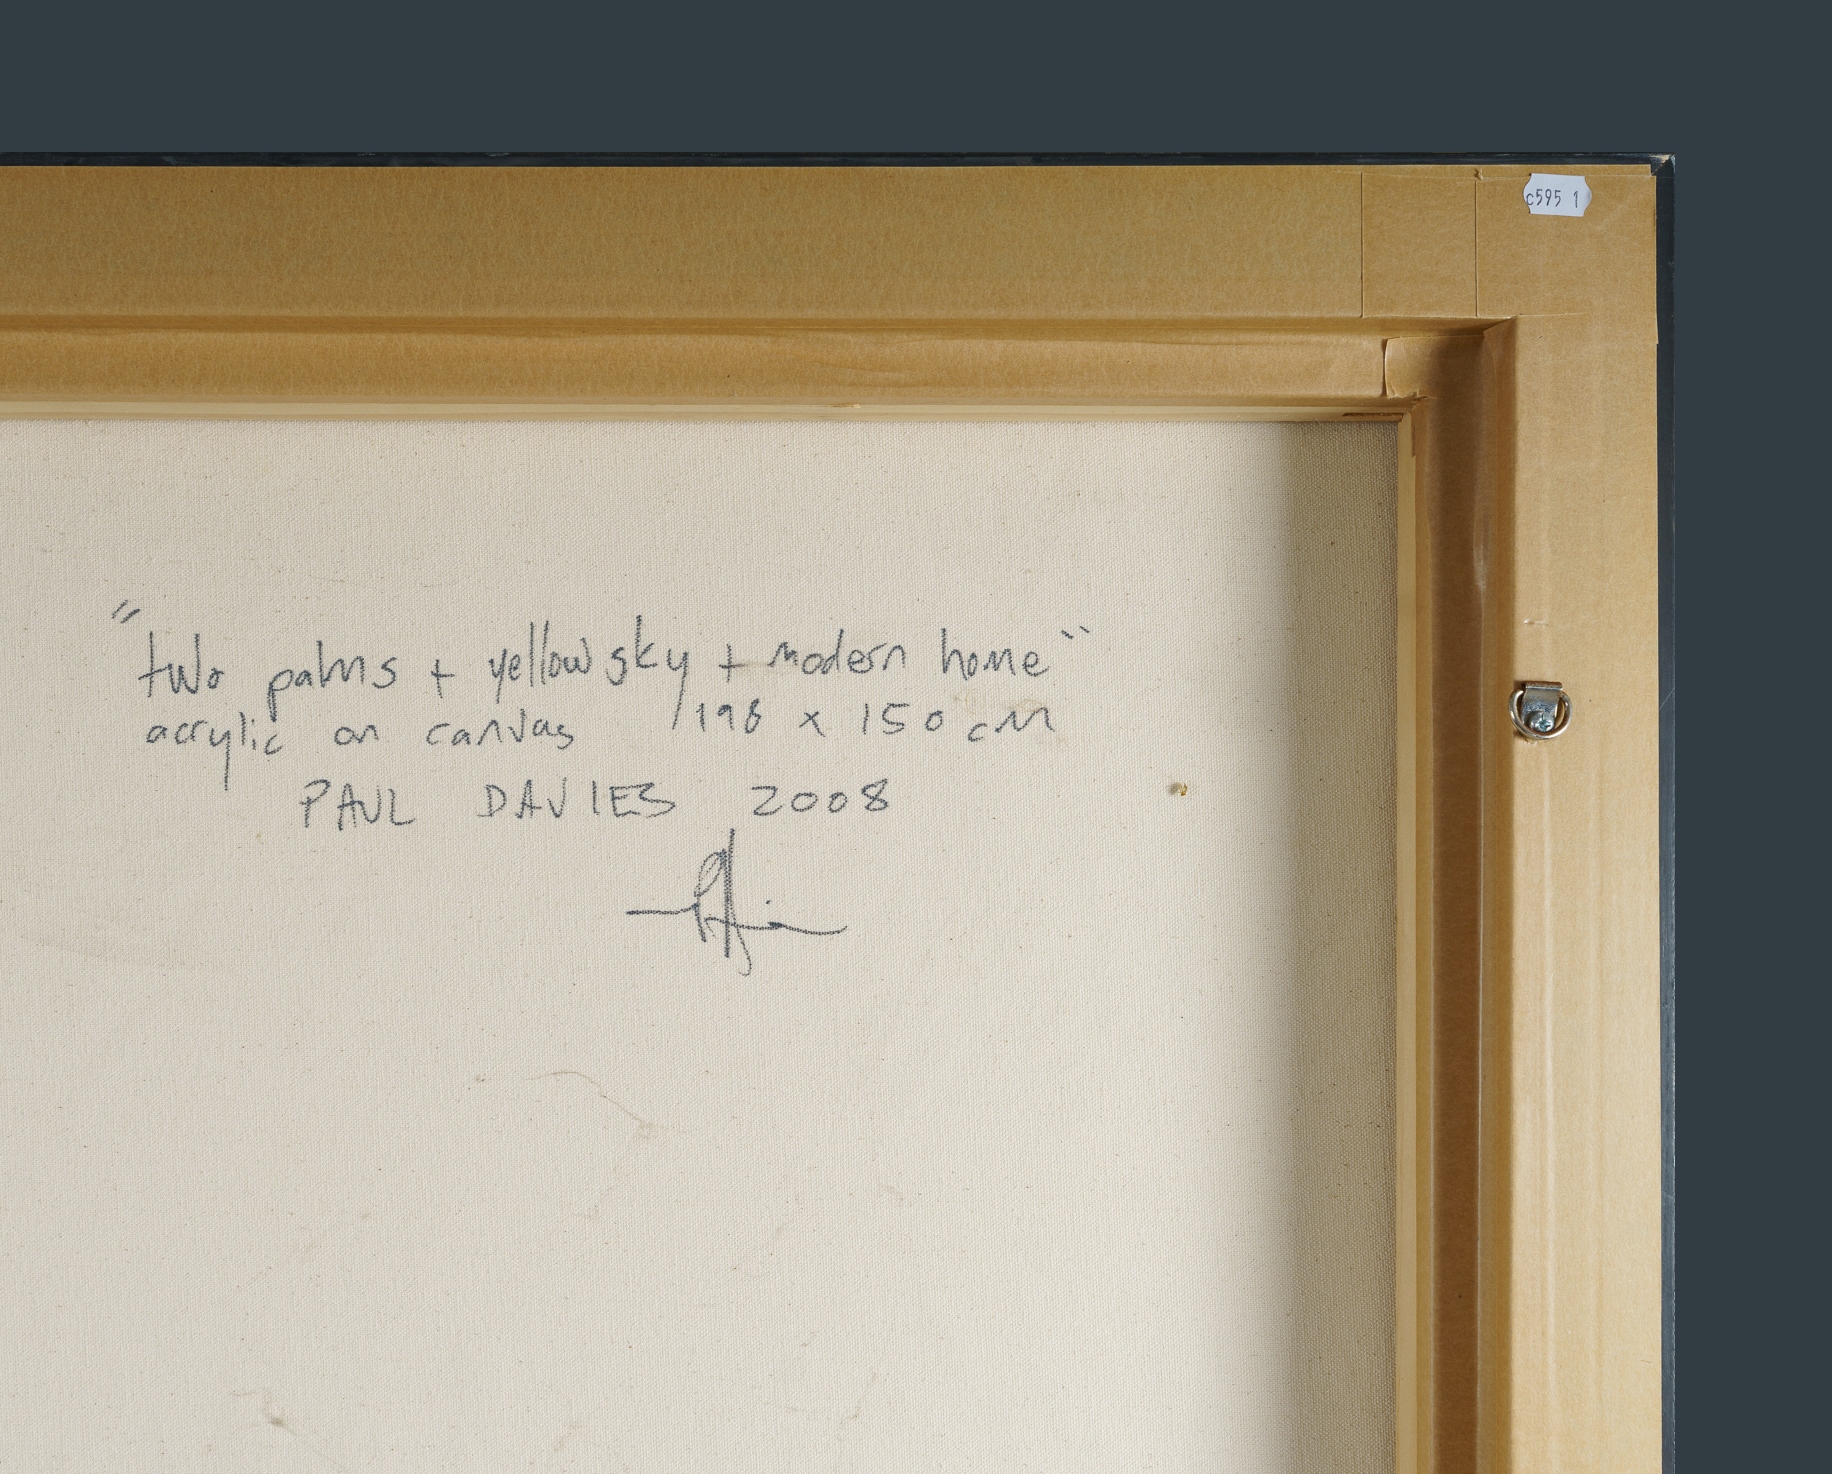 c595 1
"two palms + yellow sky + modern home"
acrylic on canvas 198 x 150 cm
PAUL DAVIES 2008